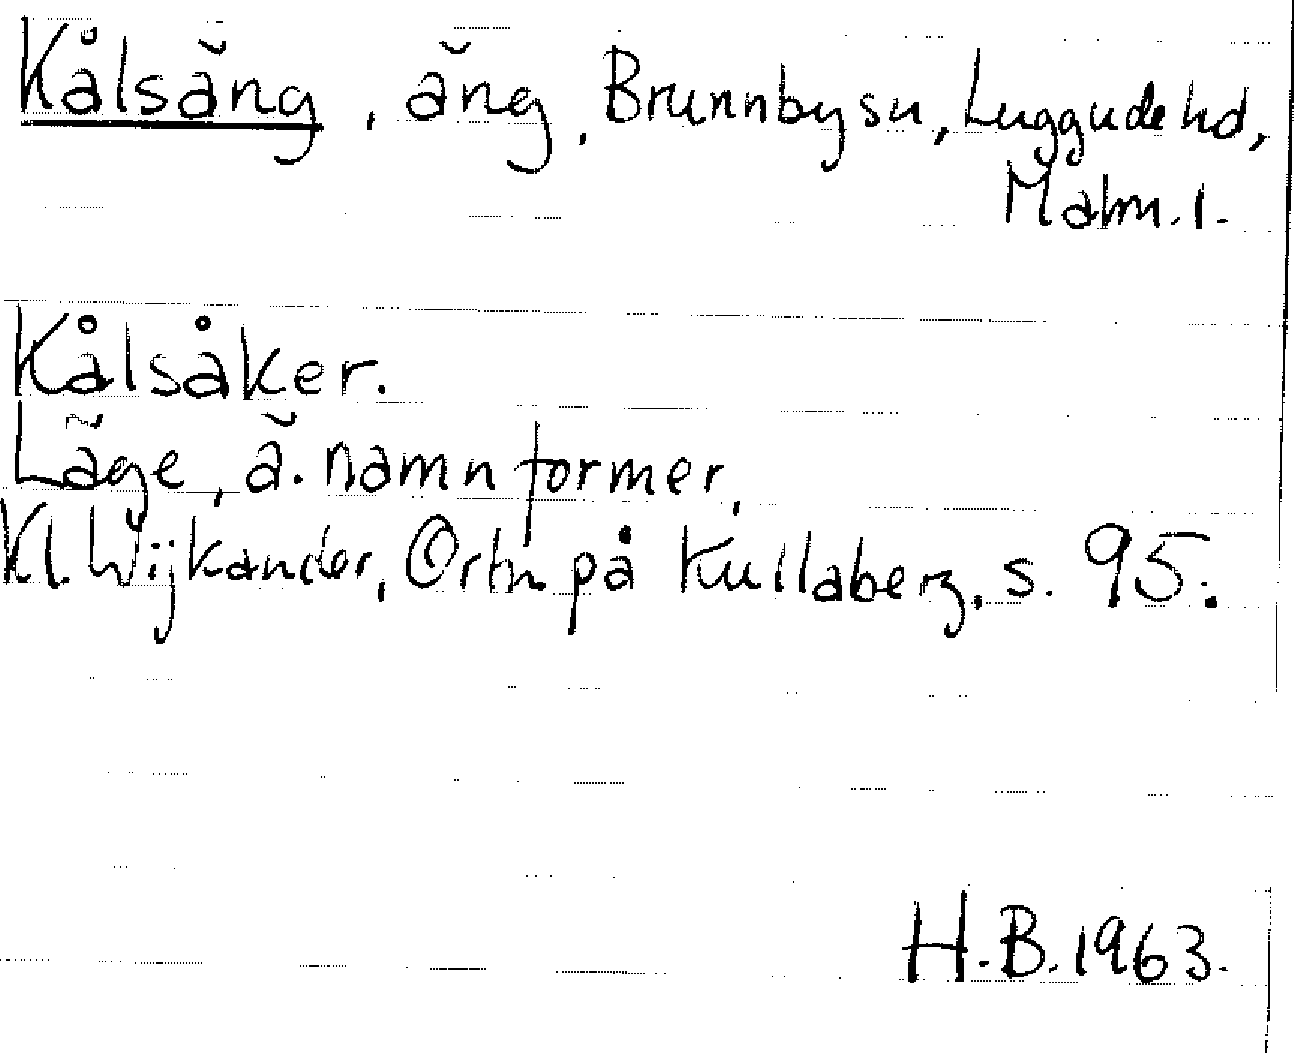 Kålsäng, äng, Brunnby sn, Luggude hd,
Malm. l.
Kålsåker.
Läge, ä. namnformer,
Kl. Wijkander, Ortn på Kullaberg, s. 95.
H.B. 1963.